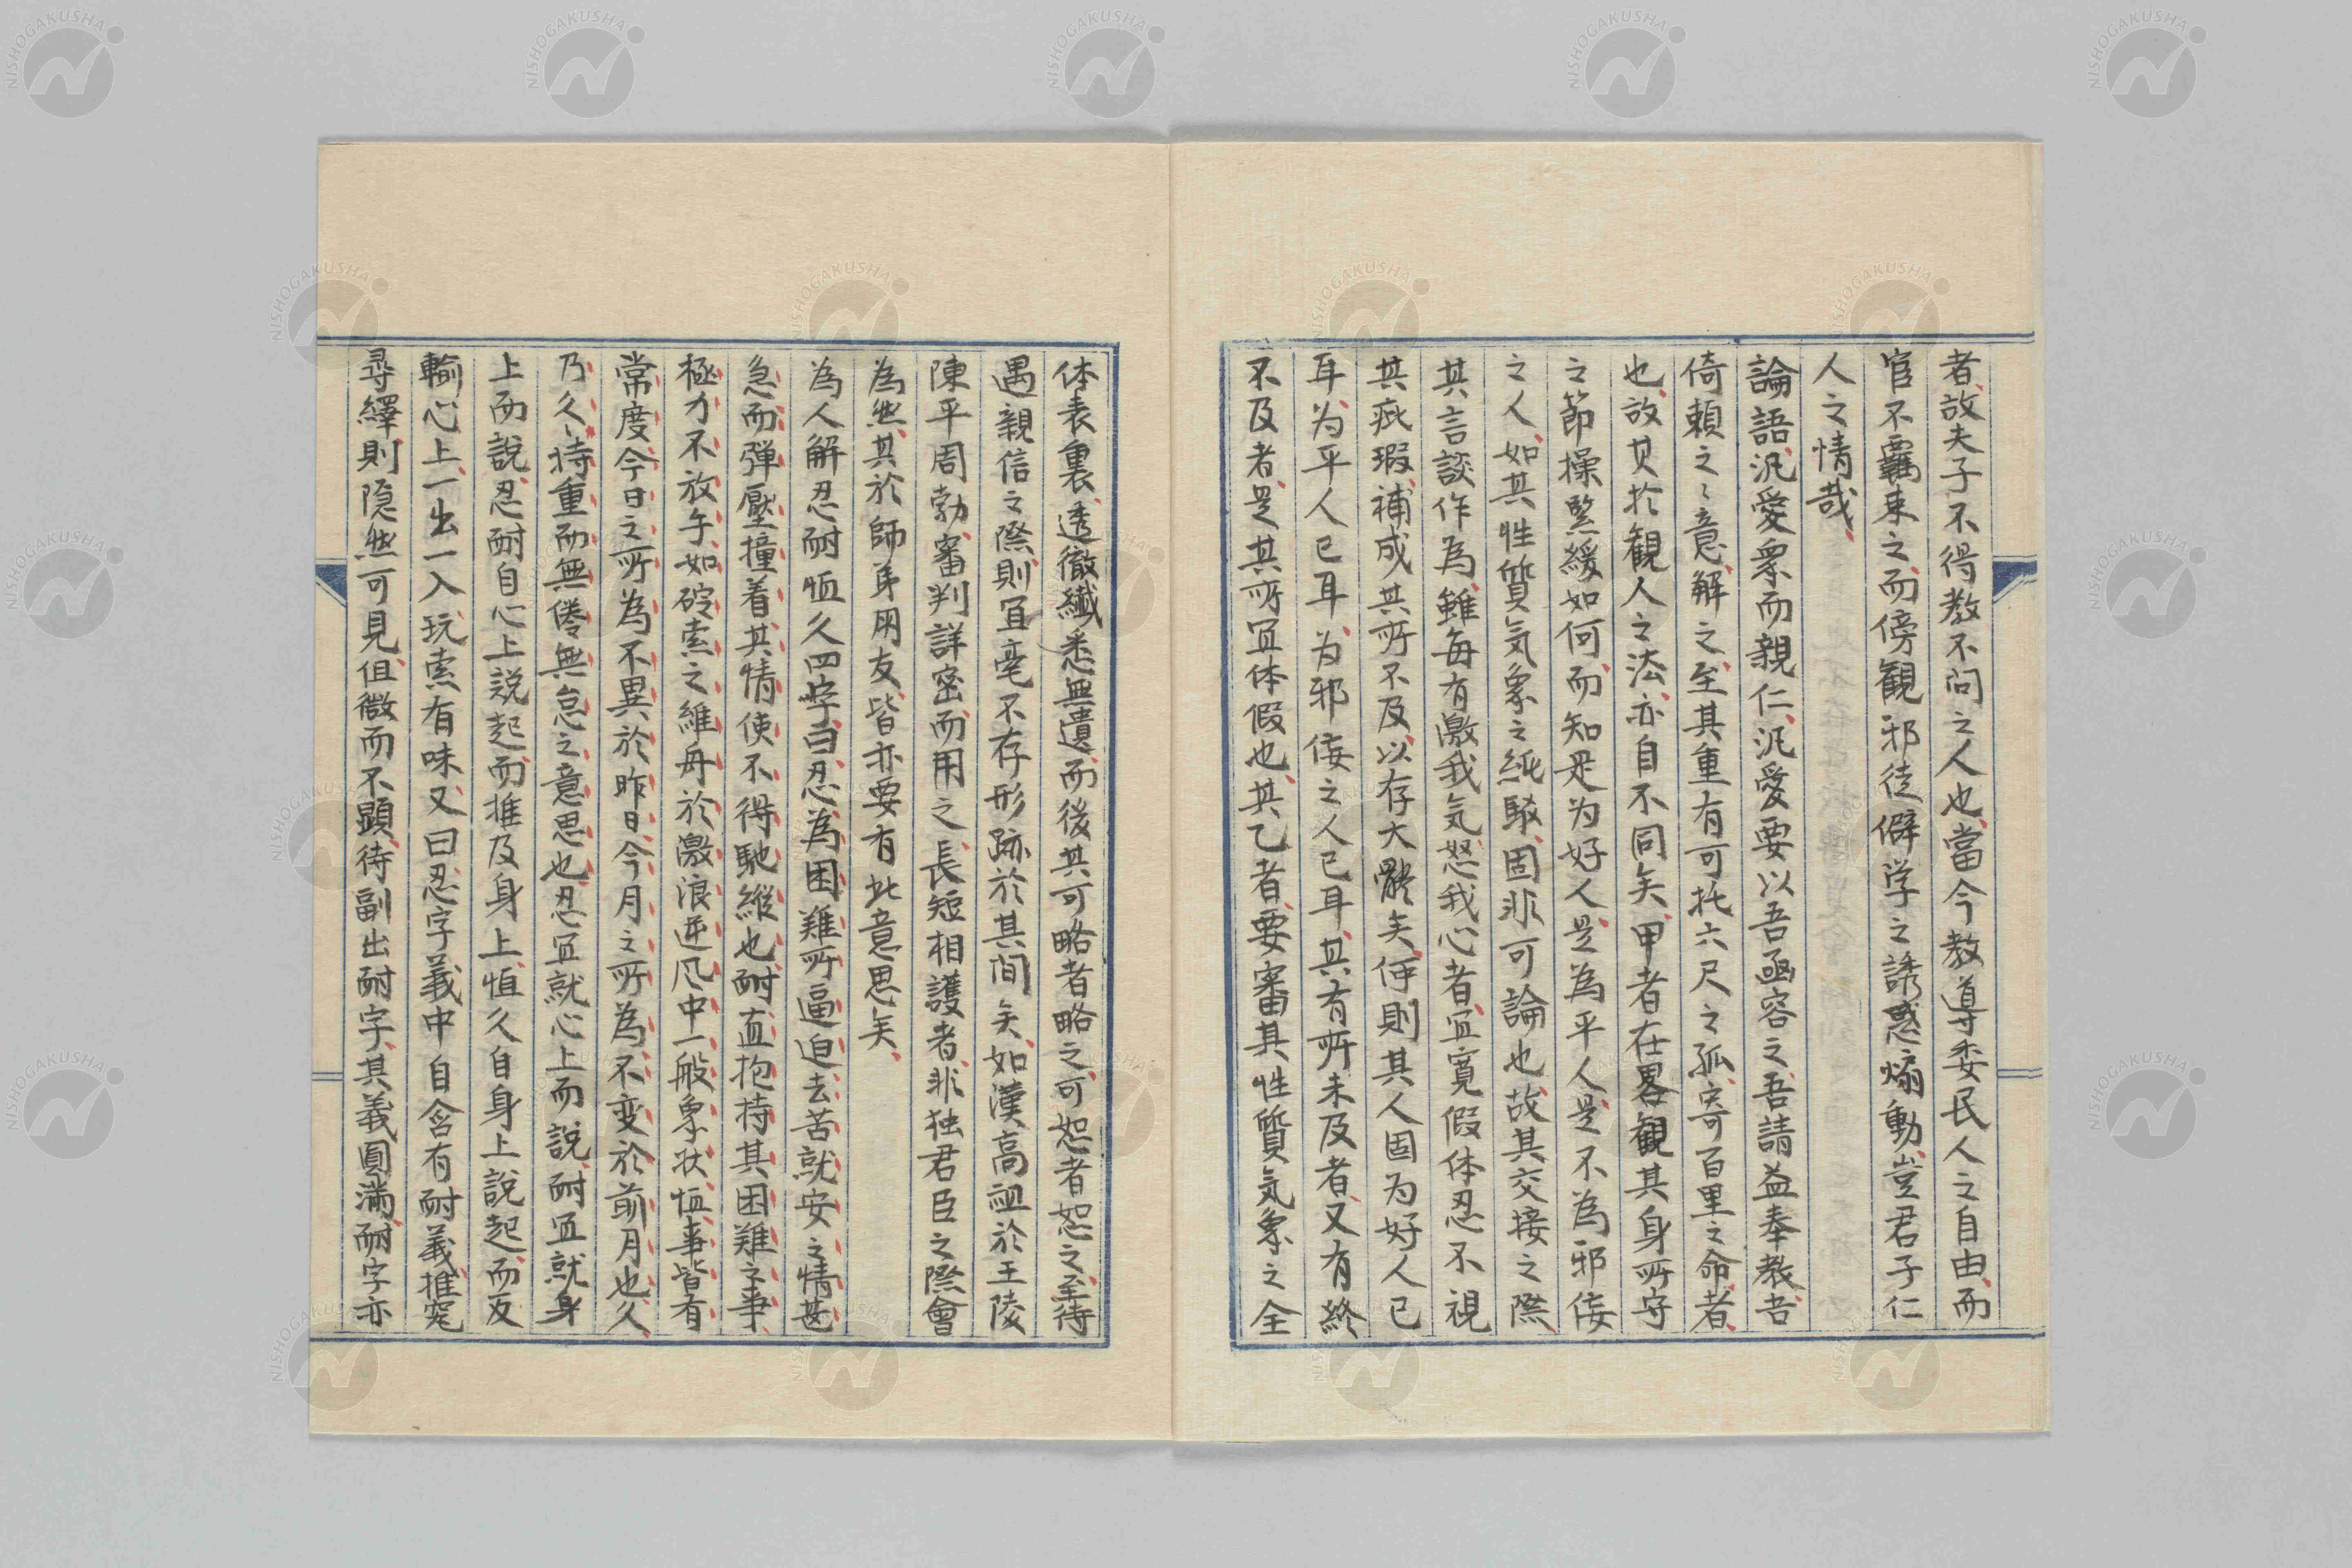 者、故夫子不得教不問之人也、當今教導委民人之自由、而
官不羈束之、而傍観邪徒僻学之誘惑煽動、豈君子仁
人之情哉、
論語汎愛衆而親仁、汎愛要以吾凾容之、吾請益奉教吾
倚頼之〻意解之、至其重有可托六尺之孤、寄百里之命者、
也、故其於観人之法、亦自不同矣、甲者在畧観其身所守
之節操緊緩如何、而知是为好人、是為平人、是不為邪佞
之人、如其性質気象之純駁、固非可論也、故其交接之際、
其言談作為、雖毎有激我気怒我心者、宜寛假体忍不視
其疵瑕、補成其所不及、以存大體矣、何則其人固为好人已
耳、为平人已耳、为邪佞之人已耳、其有所未及者、又有終
不及者、是其所宜体假也、其乙者、要審其性質気象之全
体表裏、透徹纎悉無遺、而後其可略者略之、可恕者恕之、至待
遇親信之際、則宜毫不存形跡於其间矣、如漢高祖於王陵
陳平周勃、審判詳密、而用之、長短相護者、非独君臣之際會
為然、其於師弟朋友、皆亦要有此意思矣、
為人解忍耐恒久四字曰、忍為困難所逼迫去苦就安之情甚
急而弾壓撞着其情使不得馳縱也、耐直抱持其困難之事、
極力不放午如碇索之維舟於激浪逆风中一般象状、恒事皆有
常度、今日之所為不異於昨日、今月之所為不変於前月也、久
乃久〻持重而無倦無怠之意思也、忍宜就心上而説、耐宜就身
上而説、忍耐自心上説起、而推及身上、恒久自身上説起、而反
輸心上、一出一入玩索有味、又曰忍字義中自含有耐義、推究
尋繹則隠然可見、但微而不顕、待副出耐字、其義圓満、耐字亦
NISHOGAKUSHA